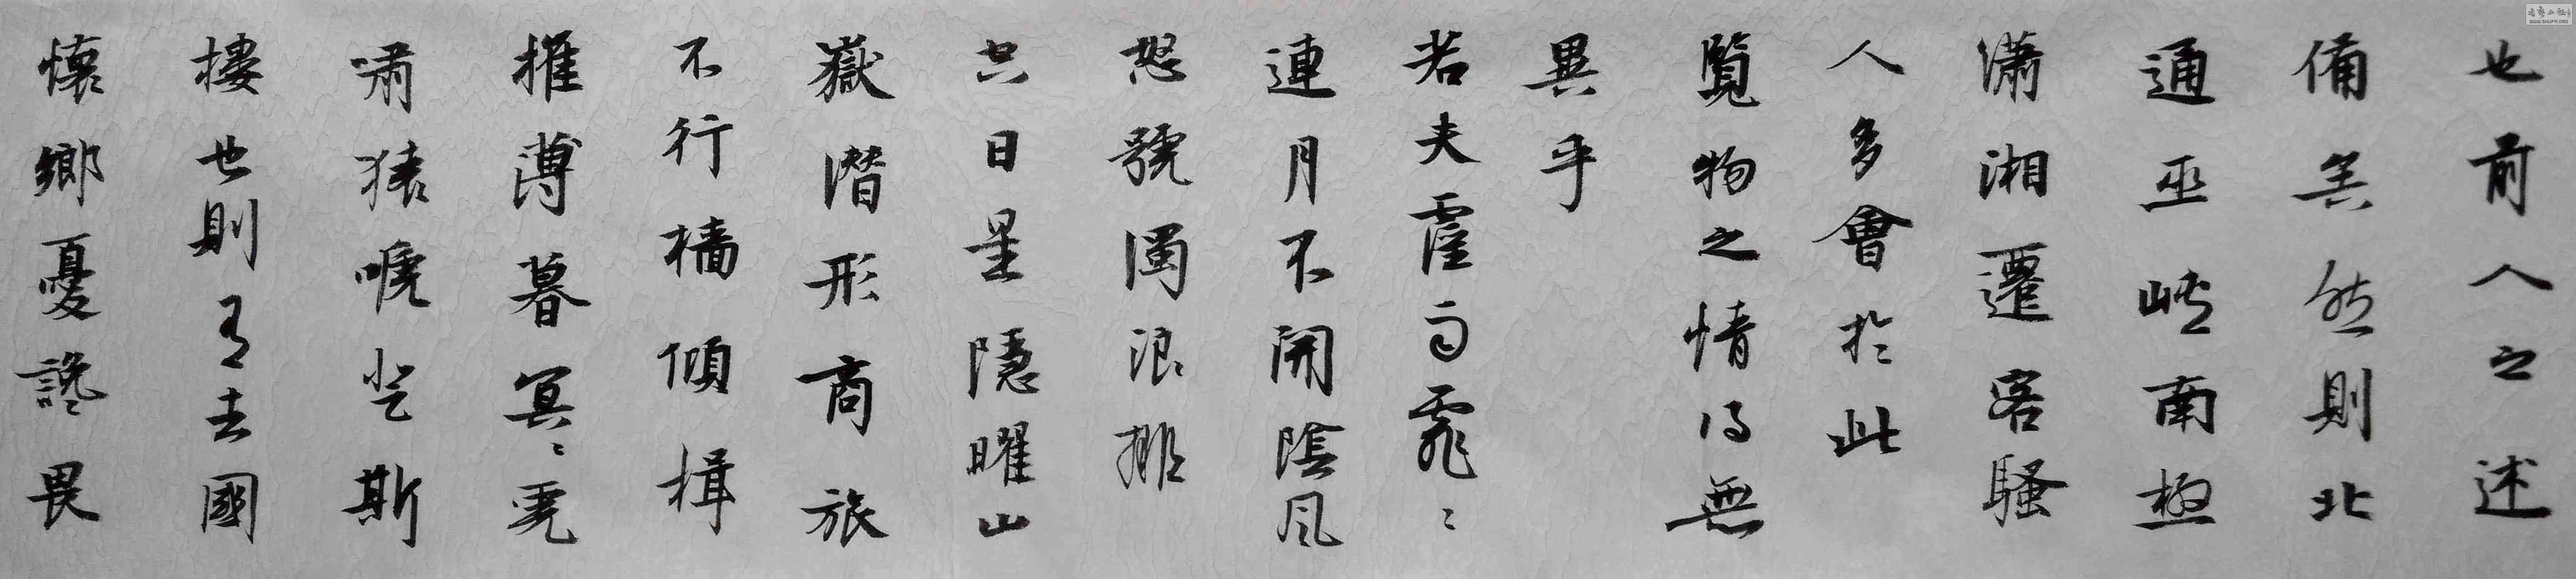 也前人之述
備矣然則北
通巫峽南極
瀟湘遷客騷
人多會於此
覧物之情得無
異乎
若夫霪雨霏〻
連月不開陰風
怒號濁浪排
空日星隱曜山
嶽潛形商旅
不行檣傾楫
摧薄暮冥〻虎
嘯猿啼登斯
樓也則有去國
懷鄉憂讒畏
WWW.SHUFR.ORG